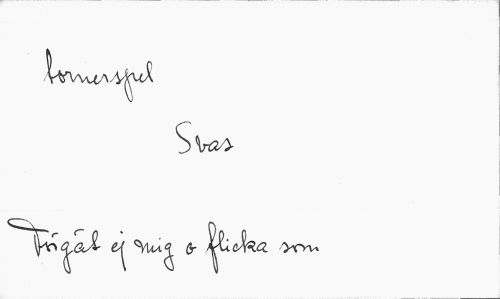 tornerspel
Svas
Förgät ej mig o flicka som